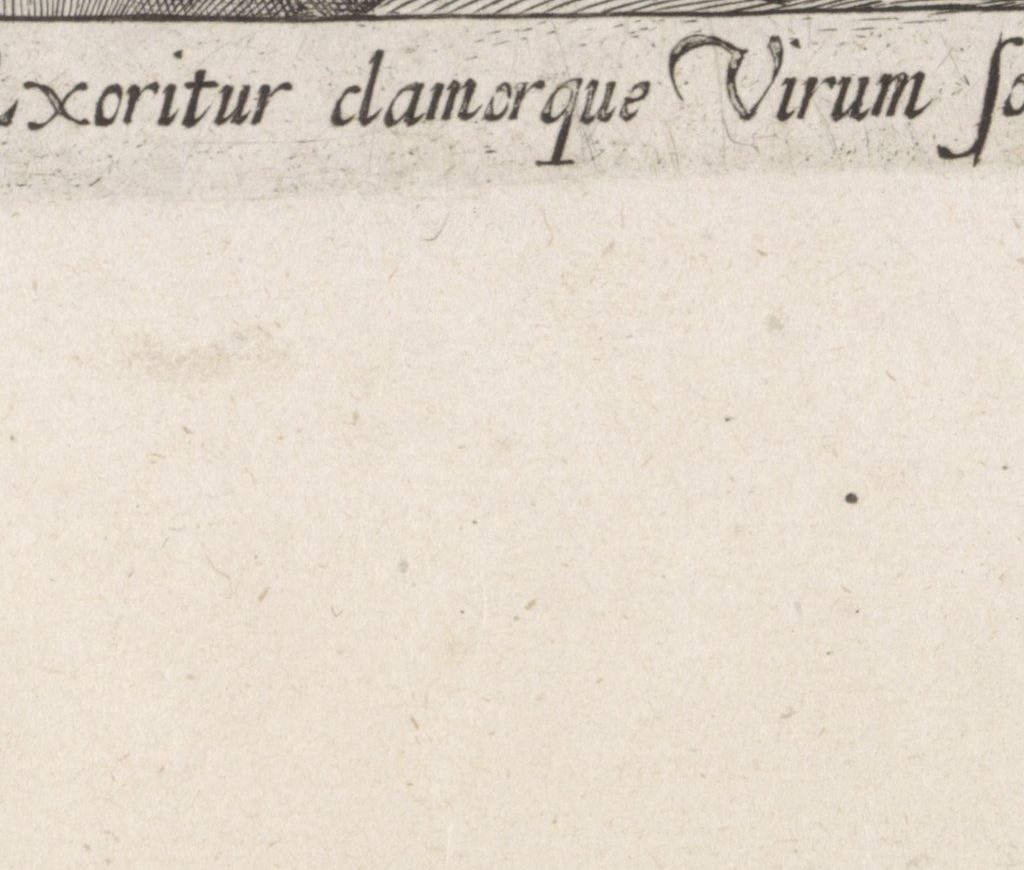 Exoritur clamorque Virum ſo